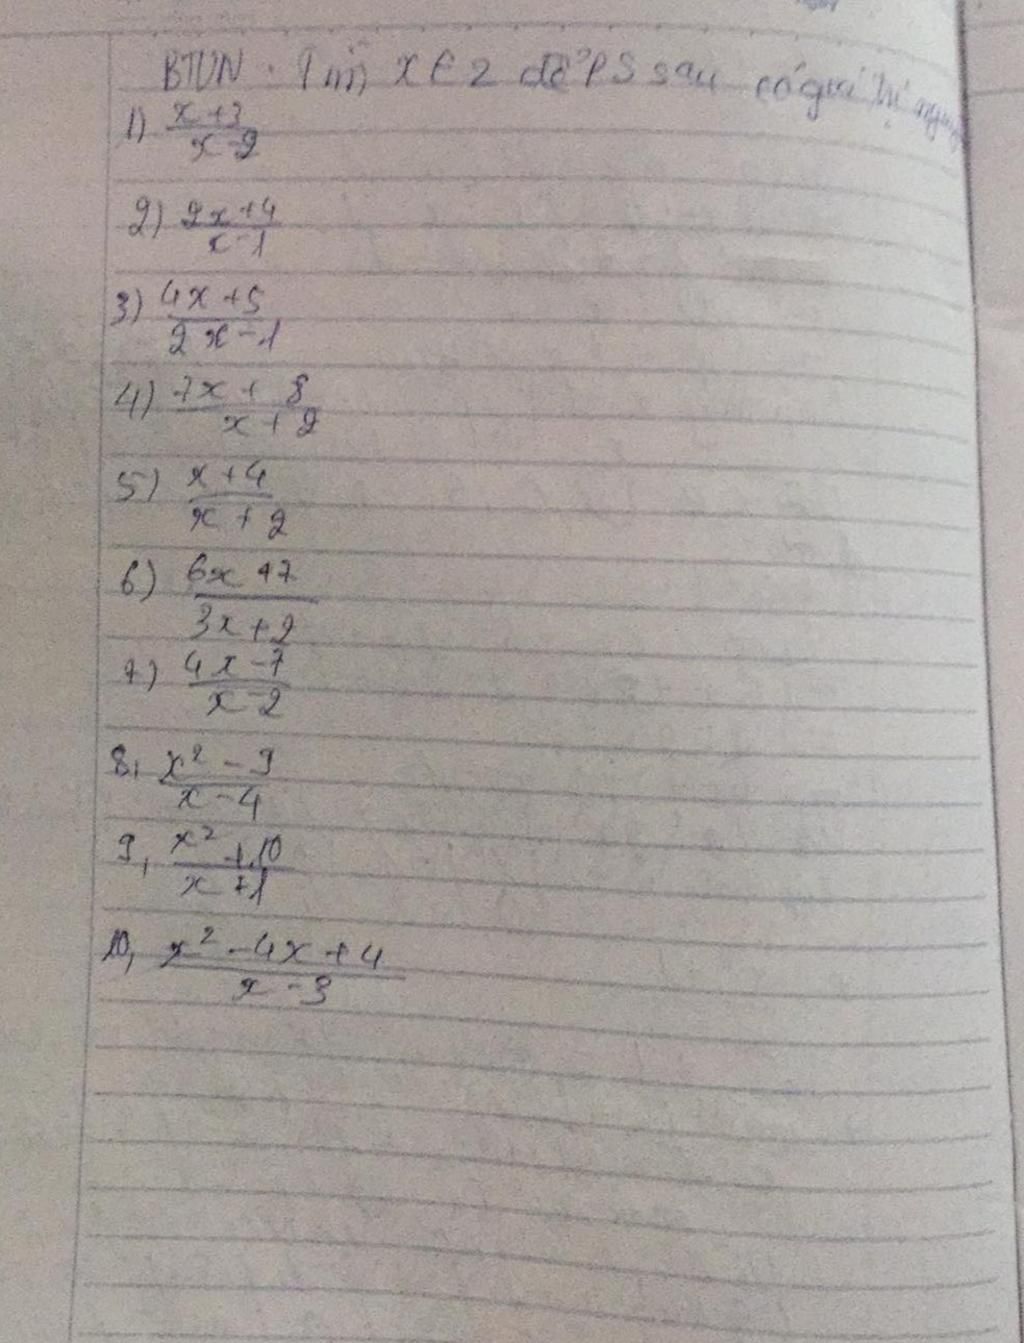 BTVN. Tìm x ∈ Z để PS sau có giá trị nguyên
1) \frac{x+3}{x-2}
2) \frac{2x+4}{x-1}
3) \frac{4x+5}{2x-1}
4) \frac{7x+8}{x+2}
5) \frac{x+4}{x+2}
6) \frac{6x+7}{3x+2}
7) \frac{4x-7}{x-2}
8, \frac{x^2-9}{x-4}
9, \frac{x^2+10}{x+1}
10, \frac{x^2-4x+4}{x-3}